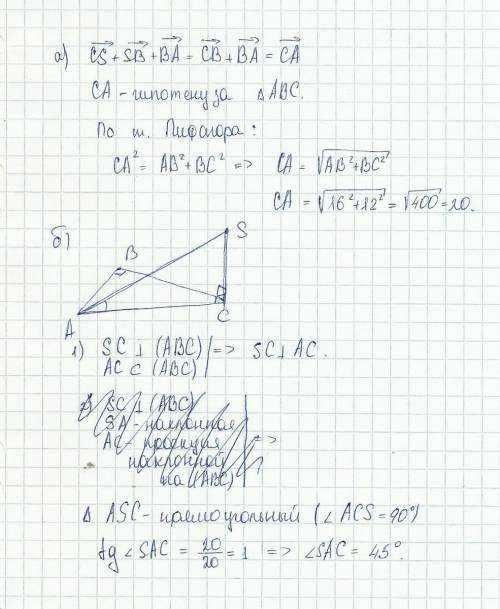 а) CS + SB + BA = CB + BA = CA
CA - гипотенуза Δ ABC.
По т. Пифагора:
CA² = AB² + BC² => CA = √AB²+BC²
CA = √16²+12² = √400 = 20.
б)
S
B
A
C
1) SC ⊥ (ABC) | => SC ⊥ AC.
AC ⊂ (ABC)
2) SC ⊥ (ABC)
SA - наклонная
AC - проекция
наклонной =>
на (ABC)
Δ ASC - прямоугольный (∠ ACS = 90°)
tg ∠ SAC = 20/20 = 1 => ∠SAC = 45°.